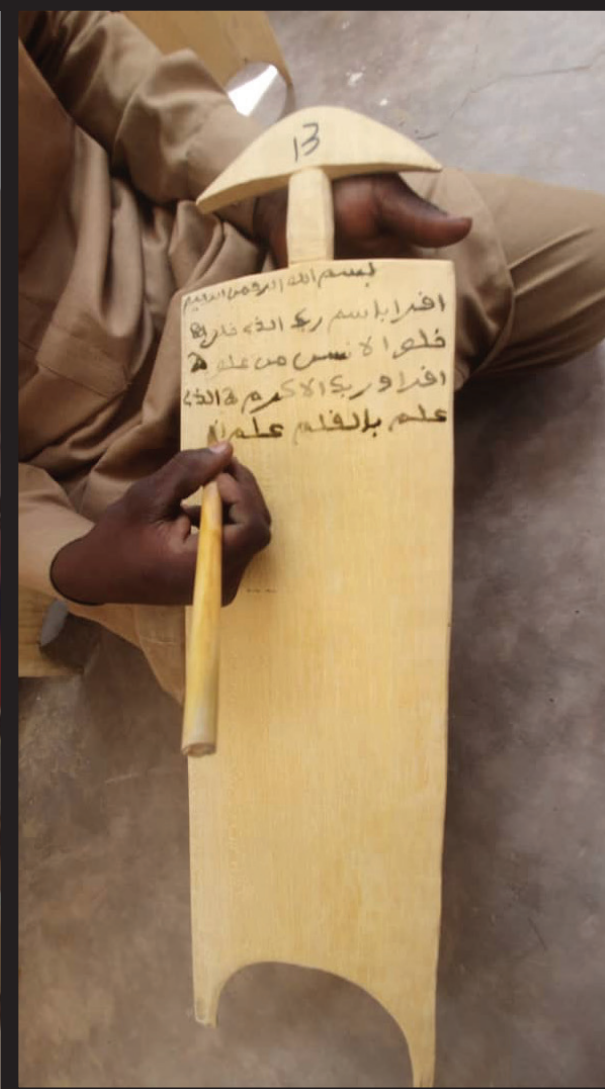 13
بسم الله الرحمن الرحيم
افرا باسم ربك الذے خلق ه
خلو الانسن من علو ه
افرا وربك الاكرم ه الذے
علم بالفلم علم ا